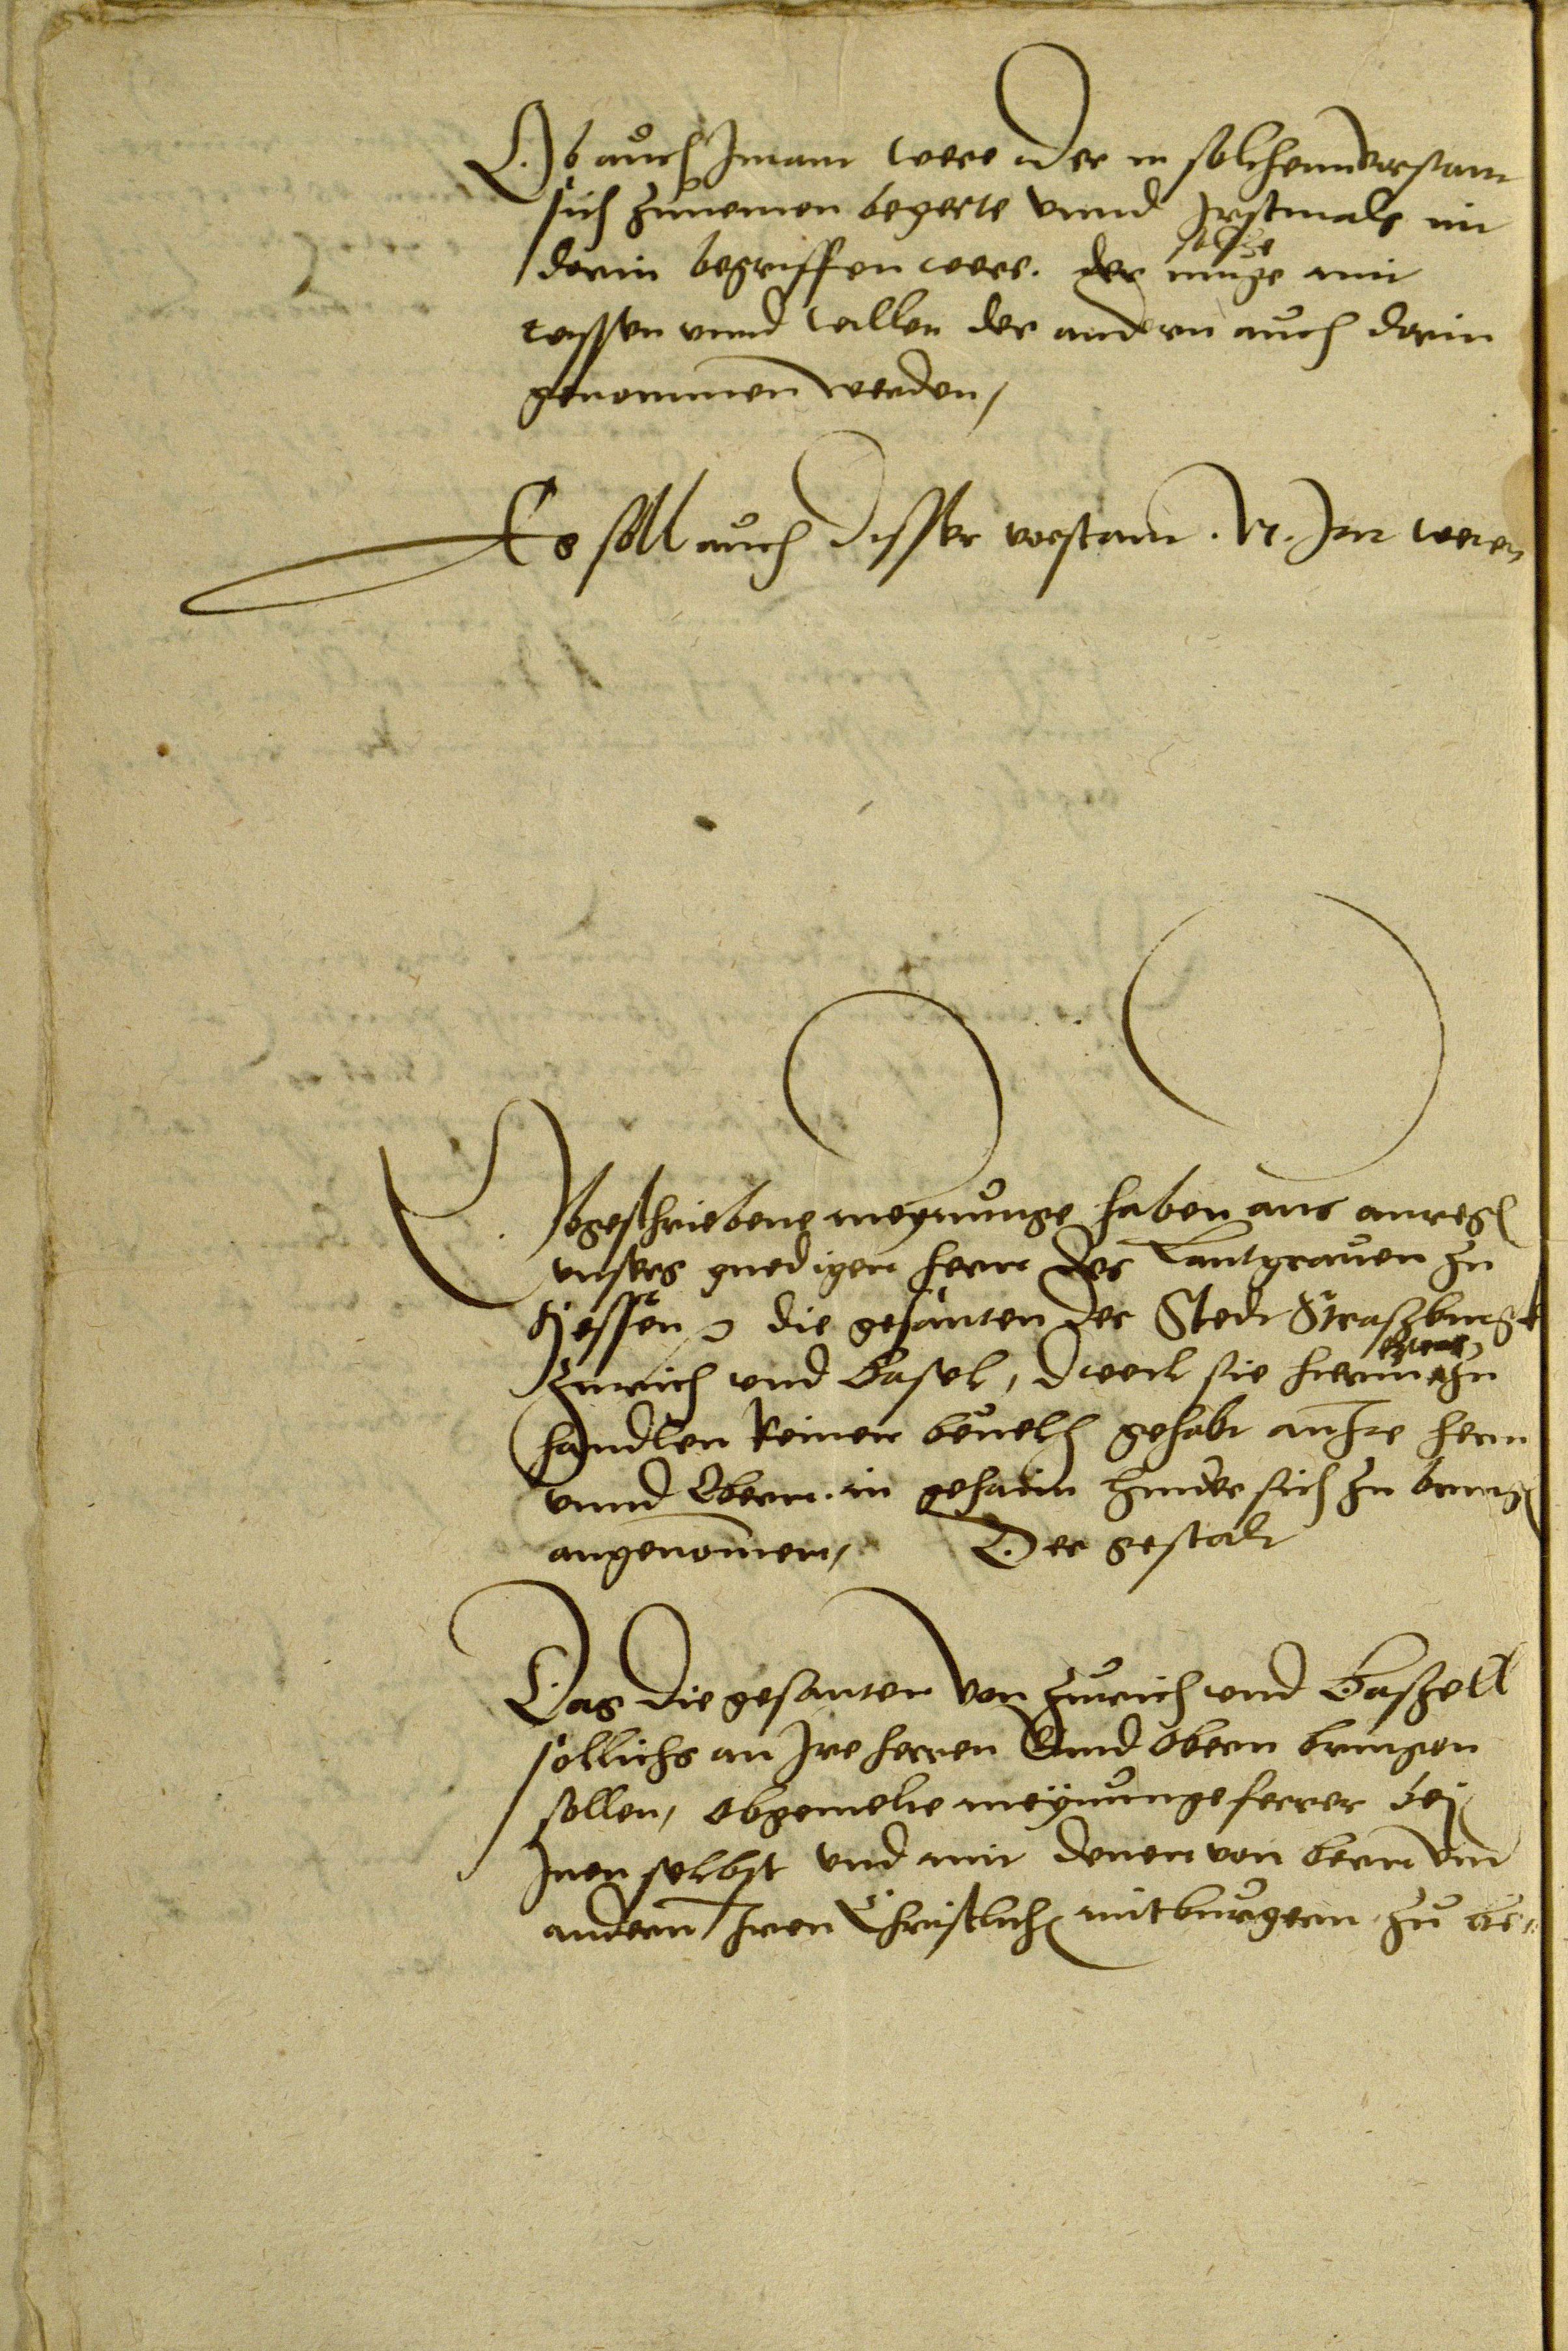 Ob auch Imant were der in solchenn verstant
sich zunemen begerte vnnd Irstmals nit
darin begriffen were. der solhe muge mit
wissen vnnd willen der andern auch darin
genommen werden,
Es soll auch disser verstant . vi. Jar weren
Obgeschriebene meynunge haben aus anregen
vnsers gnedigen hern des Lantgrauen zu
Hessen die gesanten der Stedt Straszburgk
Zurich vnd Basel, dweil sie hierinn etwas zu
handlen keinen beuelh gehabt an Ire hern
vnnd Obern in gehaim hinder sich zu bringen
angenomen, Der gestalt
Das die gesanten von Zurich vnd Baszell
sollichs an Ire herren Vnnd obern bringen
sollen, obgemelte meynunge ferrer bey
Inen selbst vnd mit denen von bern vnd
andern Iren Christlichen mitburgern zu be-